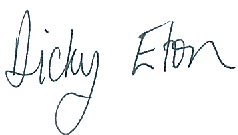 Dicky Eton